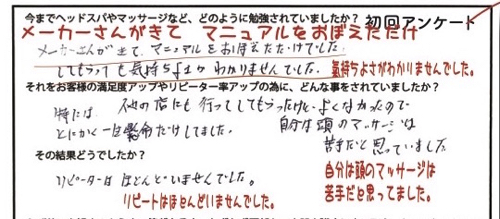 今までヘッドスパやマッサージなど、どのように勉強されていましたか？
初回アンケート
メーカーさんがきて　マニュアルをおぼえただけ
メーカーさんが来て、マニュアルをおぼえただけでした。
してもらっても気持ちよさがわかりませんでした。
気持ちよさがわかりませんでした。
それをお客様の満足度アップやリピーター率アップの為に、どんな事をされていましたか？
特には、他の店にも行ってしてもらったけど、よくなかったので
とにかく一生懸命だけしてました。
自分は頭のマッサージは
苦手だと思っていました
その結果どうでしたか？
リピーターはほとんどいませんでした。
リピートはほとんどいませんでした。
自分は頭のマッサージは
苦手だ思ってました。